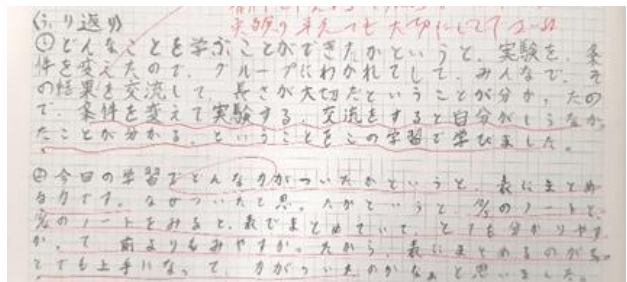 (ふり返り)
実験の考えつも大切にして
①どんなことを学ぶことができたかというと、実験を、条
件を変えたので、グループにわかれてして、みんなで、そ
の結果を交流して、長さが大切だということが分か、たの
で、条件を変えて実験する、交流をすると自分がしらなか、
たことが分かる、ということをこの学習で学びました。
②今回の学習でどんな力がついたかというと、表にまとめ
る力です。なぜついたと思、たかというと、のノートと、
のノートをみると、表でまとめていて、とても分かりやす
か、て前よりもみやすか、たから、表にまとめるのがる
とても上手にな、て、力がついたのかなぁと思いました。